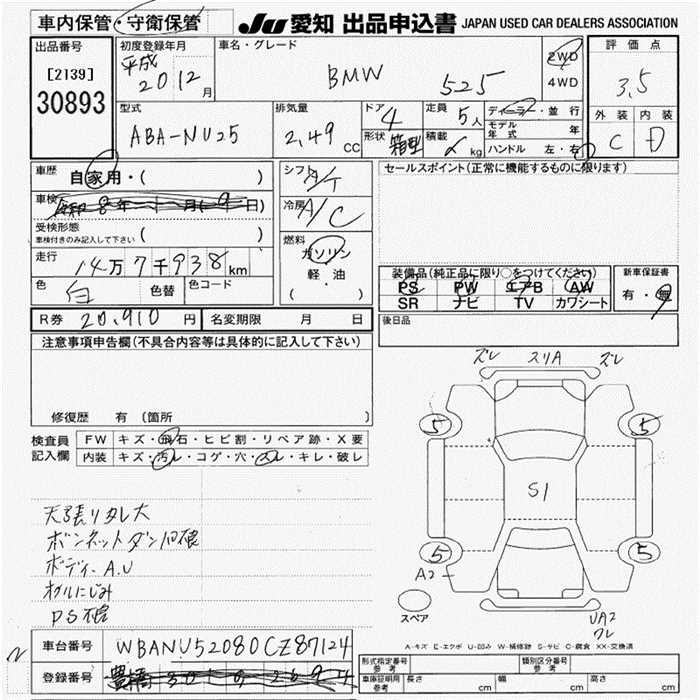 車内保管・守衛保管 JU 愛知 出品申込書 JAPAN USED CAR DEALERS ASSOCIATION
出品番号 [2139] 30893
初度登録年月 平成 20 12月
車名・グレード BMW 525
2WD 4WD
評価点 3.5
外装 内装 C D
型式 ABA-NU25
排気量 2,49 CC
ドア 4 形状 箱型
定員 5人 積載 kg
ディーラー・並行
モデル年式 年
ハンドル 左・右
車歴 自家用・( )
車検 8年 月( 日)
受検形態 車検付きのみ記入して下さい ( )
走行 14万7千938km
色 白 色替 色コード
シフト A/T
冷房 A/C
燃料 ガソリン 軽・油 ( ・ )
セールスポイント(正常に機能するものに限ります)
装備品(純正品に限り○をつけてください)
PS PW エアB AW
SR ナビ TV カワシート
新車保証書 有・無
R券 20,910円 名変期限 月 日
後日品
注意事項申告欄(不具合内容等は具体的に記入して下さい)
修復歴 有 (箇所
検査員記入欄
FW キズ・飛石・ヒビ割・リペア跡・X要
内装 キズ・汚レ・コゲ・穴・スレ・キレ・破レ
天張りタレ大
ボンネットダンパ不良
ボディーA.U
オイルにじみ
PS不良
ズレ スリA ズレ
5 5
S1
5 5
A2
スペア
UA2
ワレ
車台番号 WBANU52080CZ87124
登録番号 豊橋
A-キズ E-エクボ U-凹み W-補修跡 S-サビ C-腐食 XX-交換済
形式指定番号 参考 類別区分番号 参考
車庫証明記入欄 参考 長さ cm 幅 cm 高さ cm